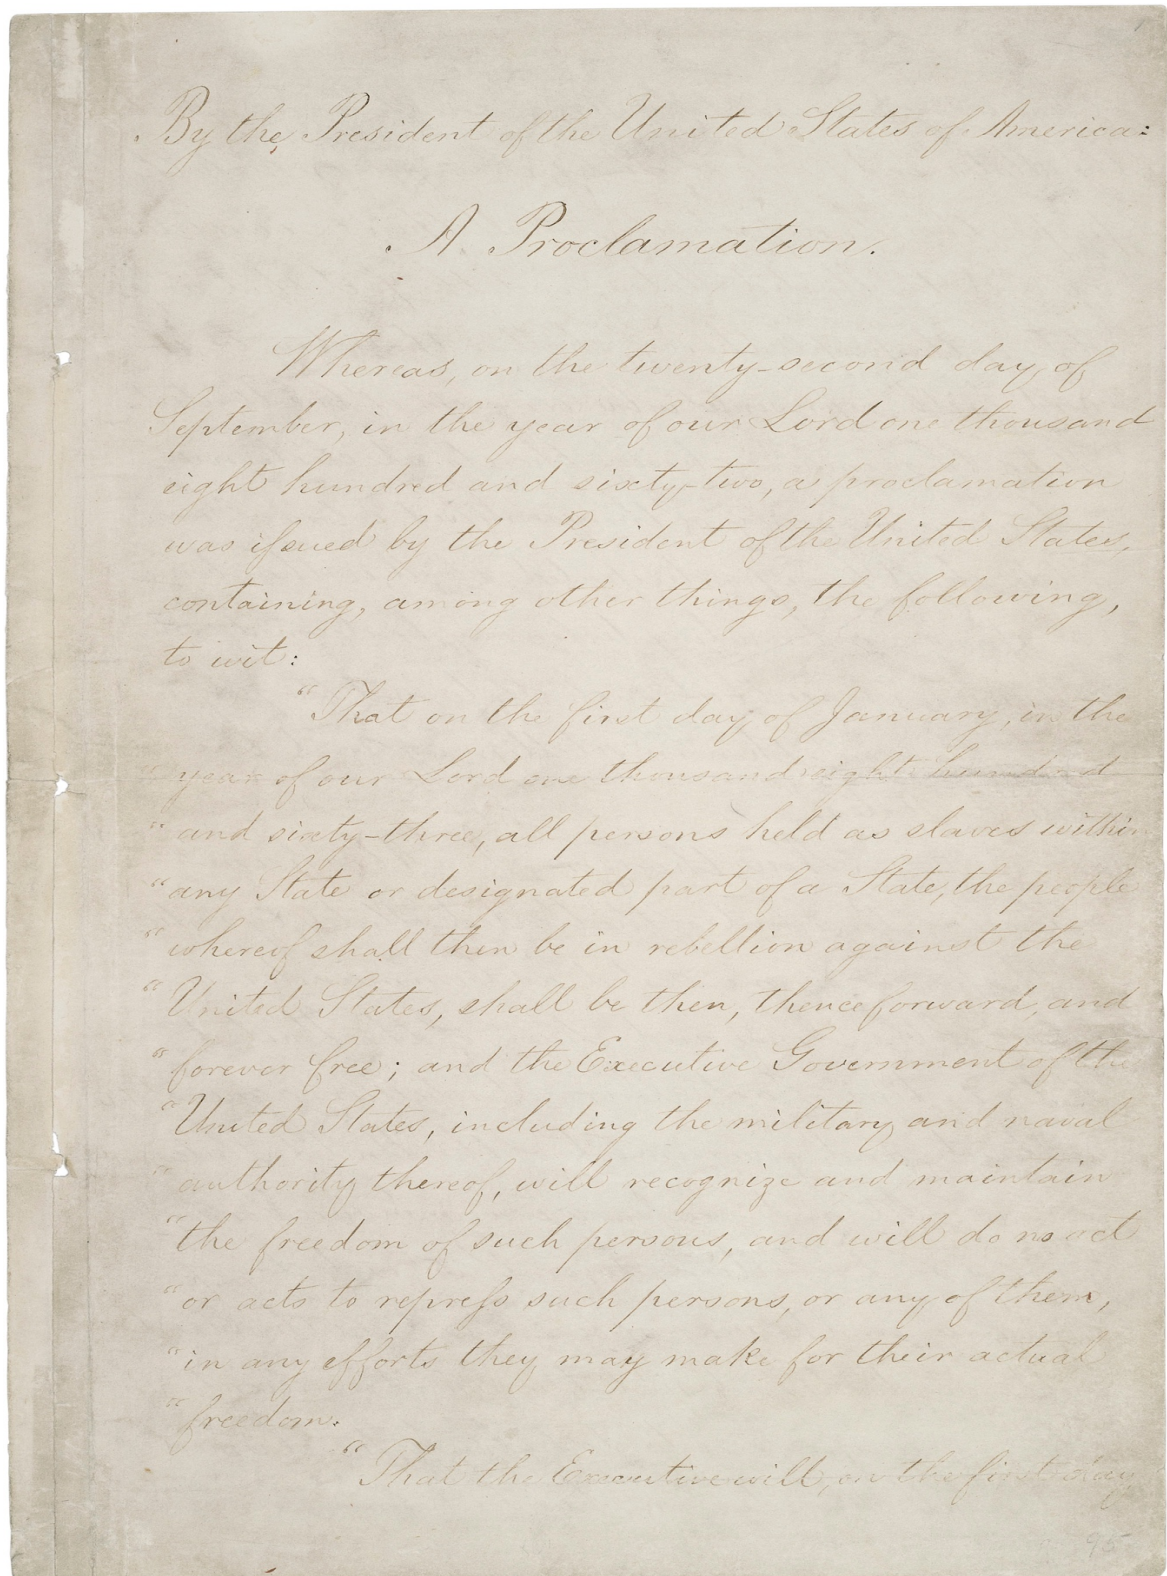 By the President of the United States of America:
A Proclamation.
Whereas, on the twenty-second day of
September, in the year of our Lord one thousand
eight hundred and sixty-two, a proclamation
was issued by the President of the United States,
containing, among other things, the following,
to wit:
"That on the first day of January, in the
"year of our Lord one thousand eight hundred
"and sixty-three, all persons held as slaves within
"any State or designated part of a State, the people
"whereof shall then be in rebellion against the
"United States, shall be then, thenceforward, and
"forever free; and the Executive Government of the
"United States, including the military and naval
"authority thereof, will recognize and maintain
"the freedom of such persons, and will do no act
"or acts to repress such persons, or any of them,
"in any efforts they may make for their actual
"freedom.
"That the Executive will, on the first day
95